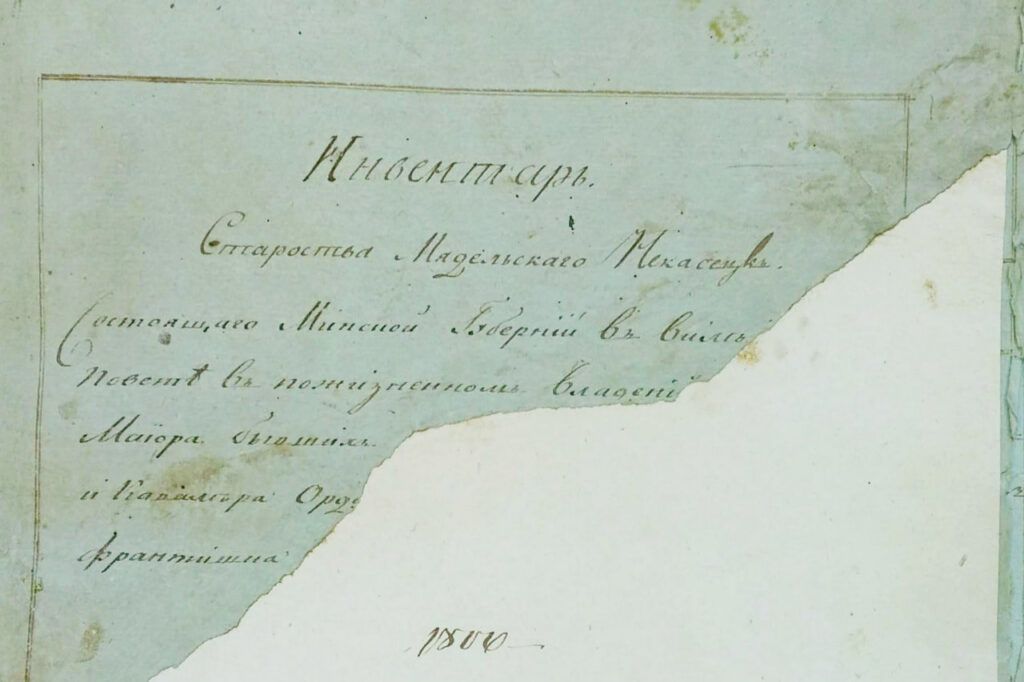 Инвентарь.
Староства Мядельскаго Некасецк
Состоящаго Минской Губерній въ Вилѣ
Повѣтѣ въ пожизненномъ Владеніи
Маіора бывшихъ
и Кавалера Орде
Франтишка
1806